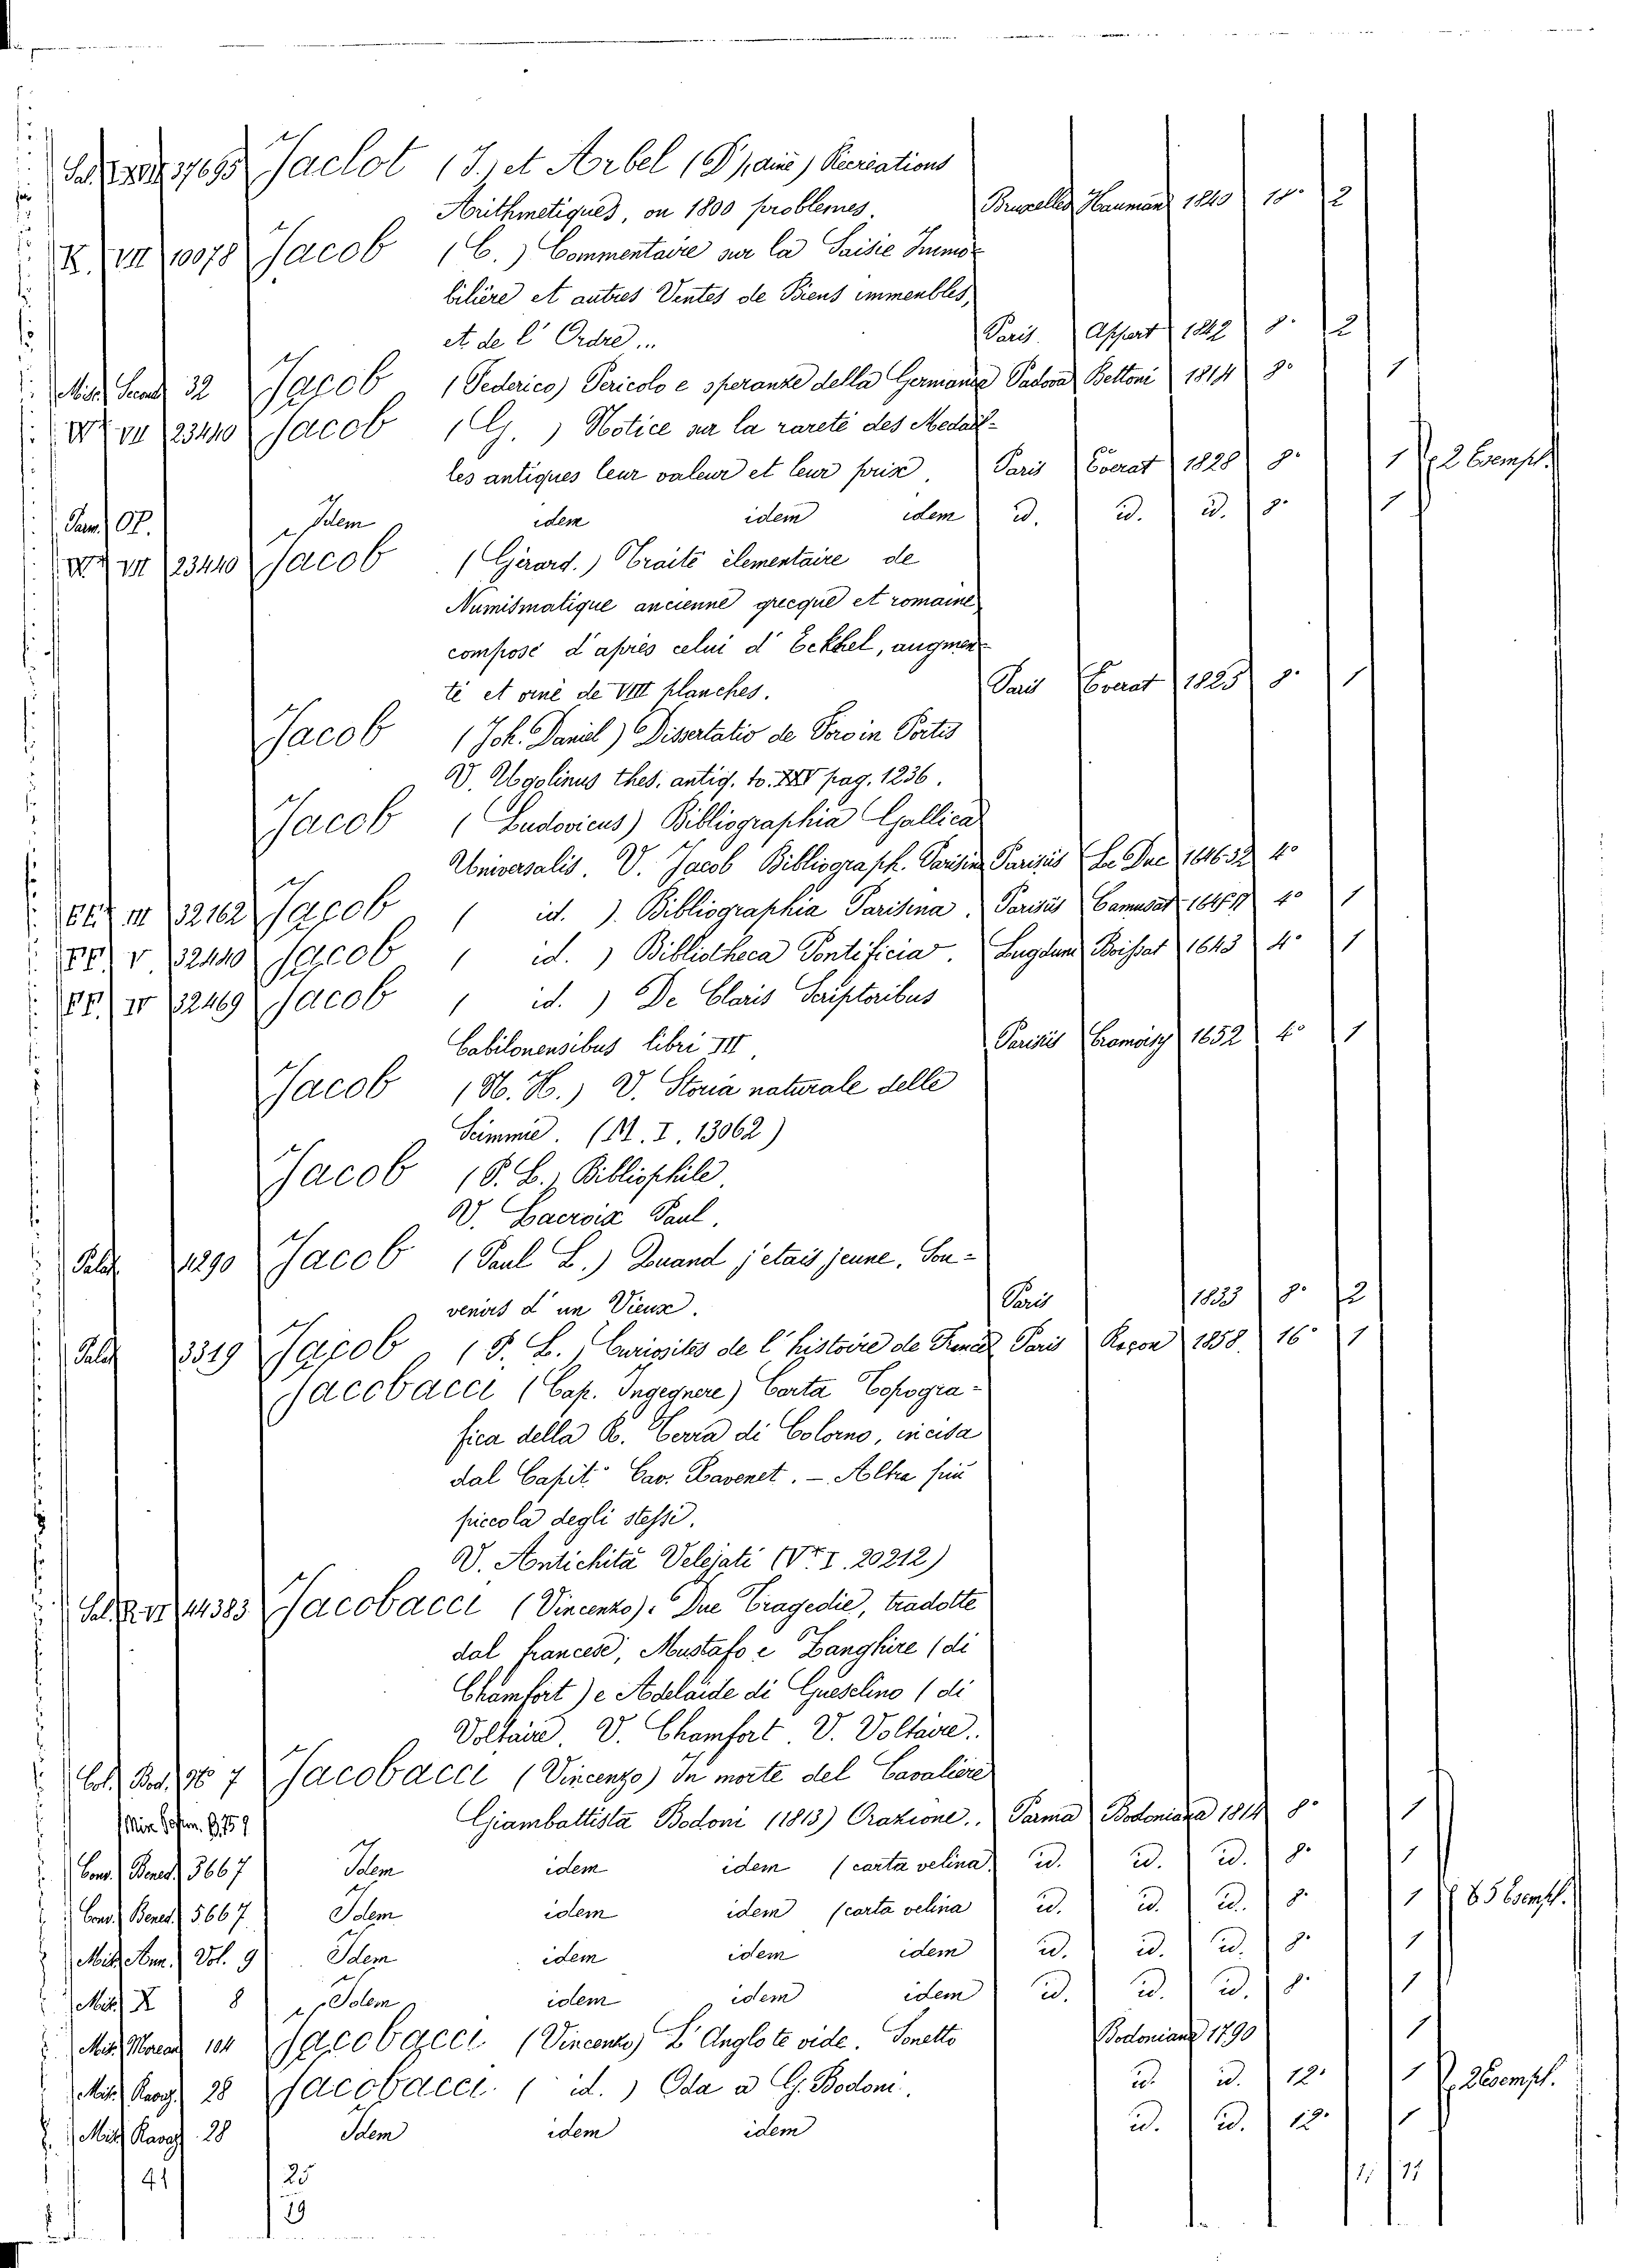 37695 Jaclot (J.) et Arbel (P.) ainé) Recréations
Arithmetiques, on 1800 problemes. Bruxelles Hauman 1840 18° 2
K. VII 10078 Jacob (C.) Commentaire sur la Saisie Immo-
bilière et autres Ventes de Biens immeubles,
et de l'Ordre... Paris. Appert 1842 8° 2
Misc. 32 Jacob (Federico) Pericolo e speranze della Germania Padova Bettoni 1814 8° 1
VII 23440 Jacob (G.) Notice sur la rareté des Medail-
les antiques leur valeur et leur prix, Paris Everat 1828 8° 1 2 Esempl.
Parm. OP. Idem idem idem idem id. id. id. 8° 1
VII 23440 Jacob (Gérard.) Traité élementaire de
Numismatique ancienne grecque et romaine
composé d'après celui d'Eckhel, augmen-
té et orné de VIII planches. Paris Everat 1825 8° 1
Jacob (Joh. Daniel) Dissertatio de Foro in Portis
V. Ugolinus thes. antiq. to. XXV pag. 1236.
Jacob (Ludovicus) Bibliographia Gallica
Universalis. V. Jacob Bibliograph. Parisina Parisiis Le Duc 4°
III 32162 Jacob ( id. ) Bibliographia Parisina. Parisiis Camusat 4° 1
V 32440 Jacob ( id. ) Bibliotheca Pontificia. Lugduni Boissat 1643 4° 1
IV 32469 Jacob ( id. ) De Claris Scriptoribus
Cabilonensibus libri III, Parisiis Cramoisy 1652 4° 1
Jacob (N. H.) V. Storia naturale delle
Scimmie. (M. I. 13062)
Jacob (P. L.) Bibliophile.
V. Lacroix Paul.
Palat. 1290 Jacob (Paul L.) Quand j'etais jeune, Sou-
venirs d'un Vieux. Paris 1833 8° 2
Palat 3319 Jacob (P. L.) Curiosités de l'histoire de France Paris 1858. 16° 1
Jacobacci (Cap. Ingegnere) Carta Topogra-
fica della R. Terra di Colorno, incisa
dal Capit.° Cav. Ravenet. - Altra più
piccola degli stessi.
V. Antichità Velejati (V.* I. 20212)
Sal. R. VI 44383 Jacobacci (Vincenzo). Due Tragedie, tradotte
dal francese, Mustafo e Zanghire (di
Chamfort) e Adelaide di Gueselino (di
Voltaire V. Chamfort. V. Voltaire.
Col. Bod. N° 7 Jacobacci (Vincenzo) In morte del Cavaliere
Giambattista Bodoni (1813) Orazione. Parma Bodoniana 1814 8° 1
Cons. Bened. 3667 Idem idem idem (carta velina) id. id. id. 8° 1
Cons. Bened. 5667 Idem idem idem (carta velina id. id. id. 8° 1 5 Esempl.
Misc. Vol. 9 Idem idem idem idem id. id. id. 8° 1
Misc. X 8 Idem idem idem idem id. id. id. 8° 1
Misc. 104 Jacobacci (Vincenzo) L'Anglo te vide. Sonetto Bodoniana 1790 1
Misc. 28 Jacobacci ( id. ) Oda a G. Bodoni. id. id. 12° 1 2 Esempl.
Misc. 28 Idem idem idem id. id. 12° 1
41 25
19